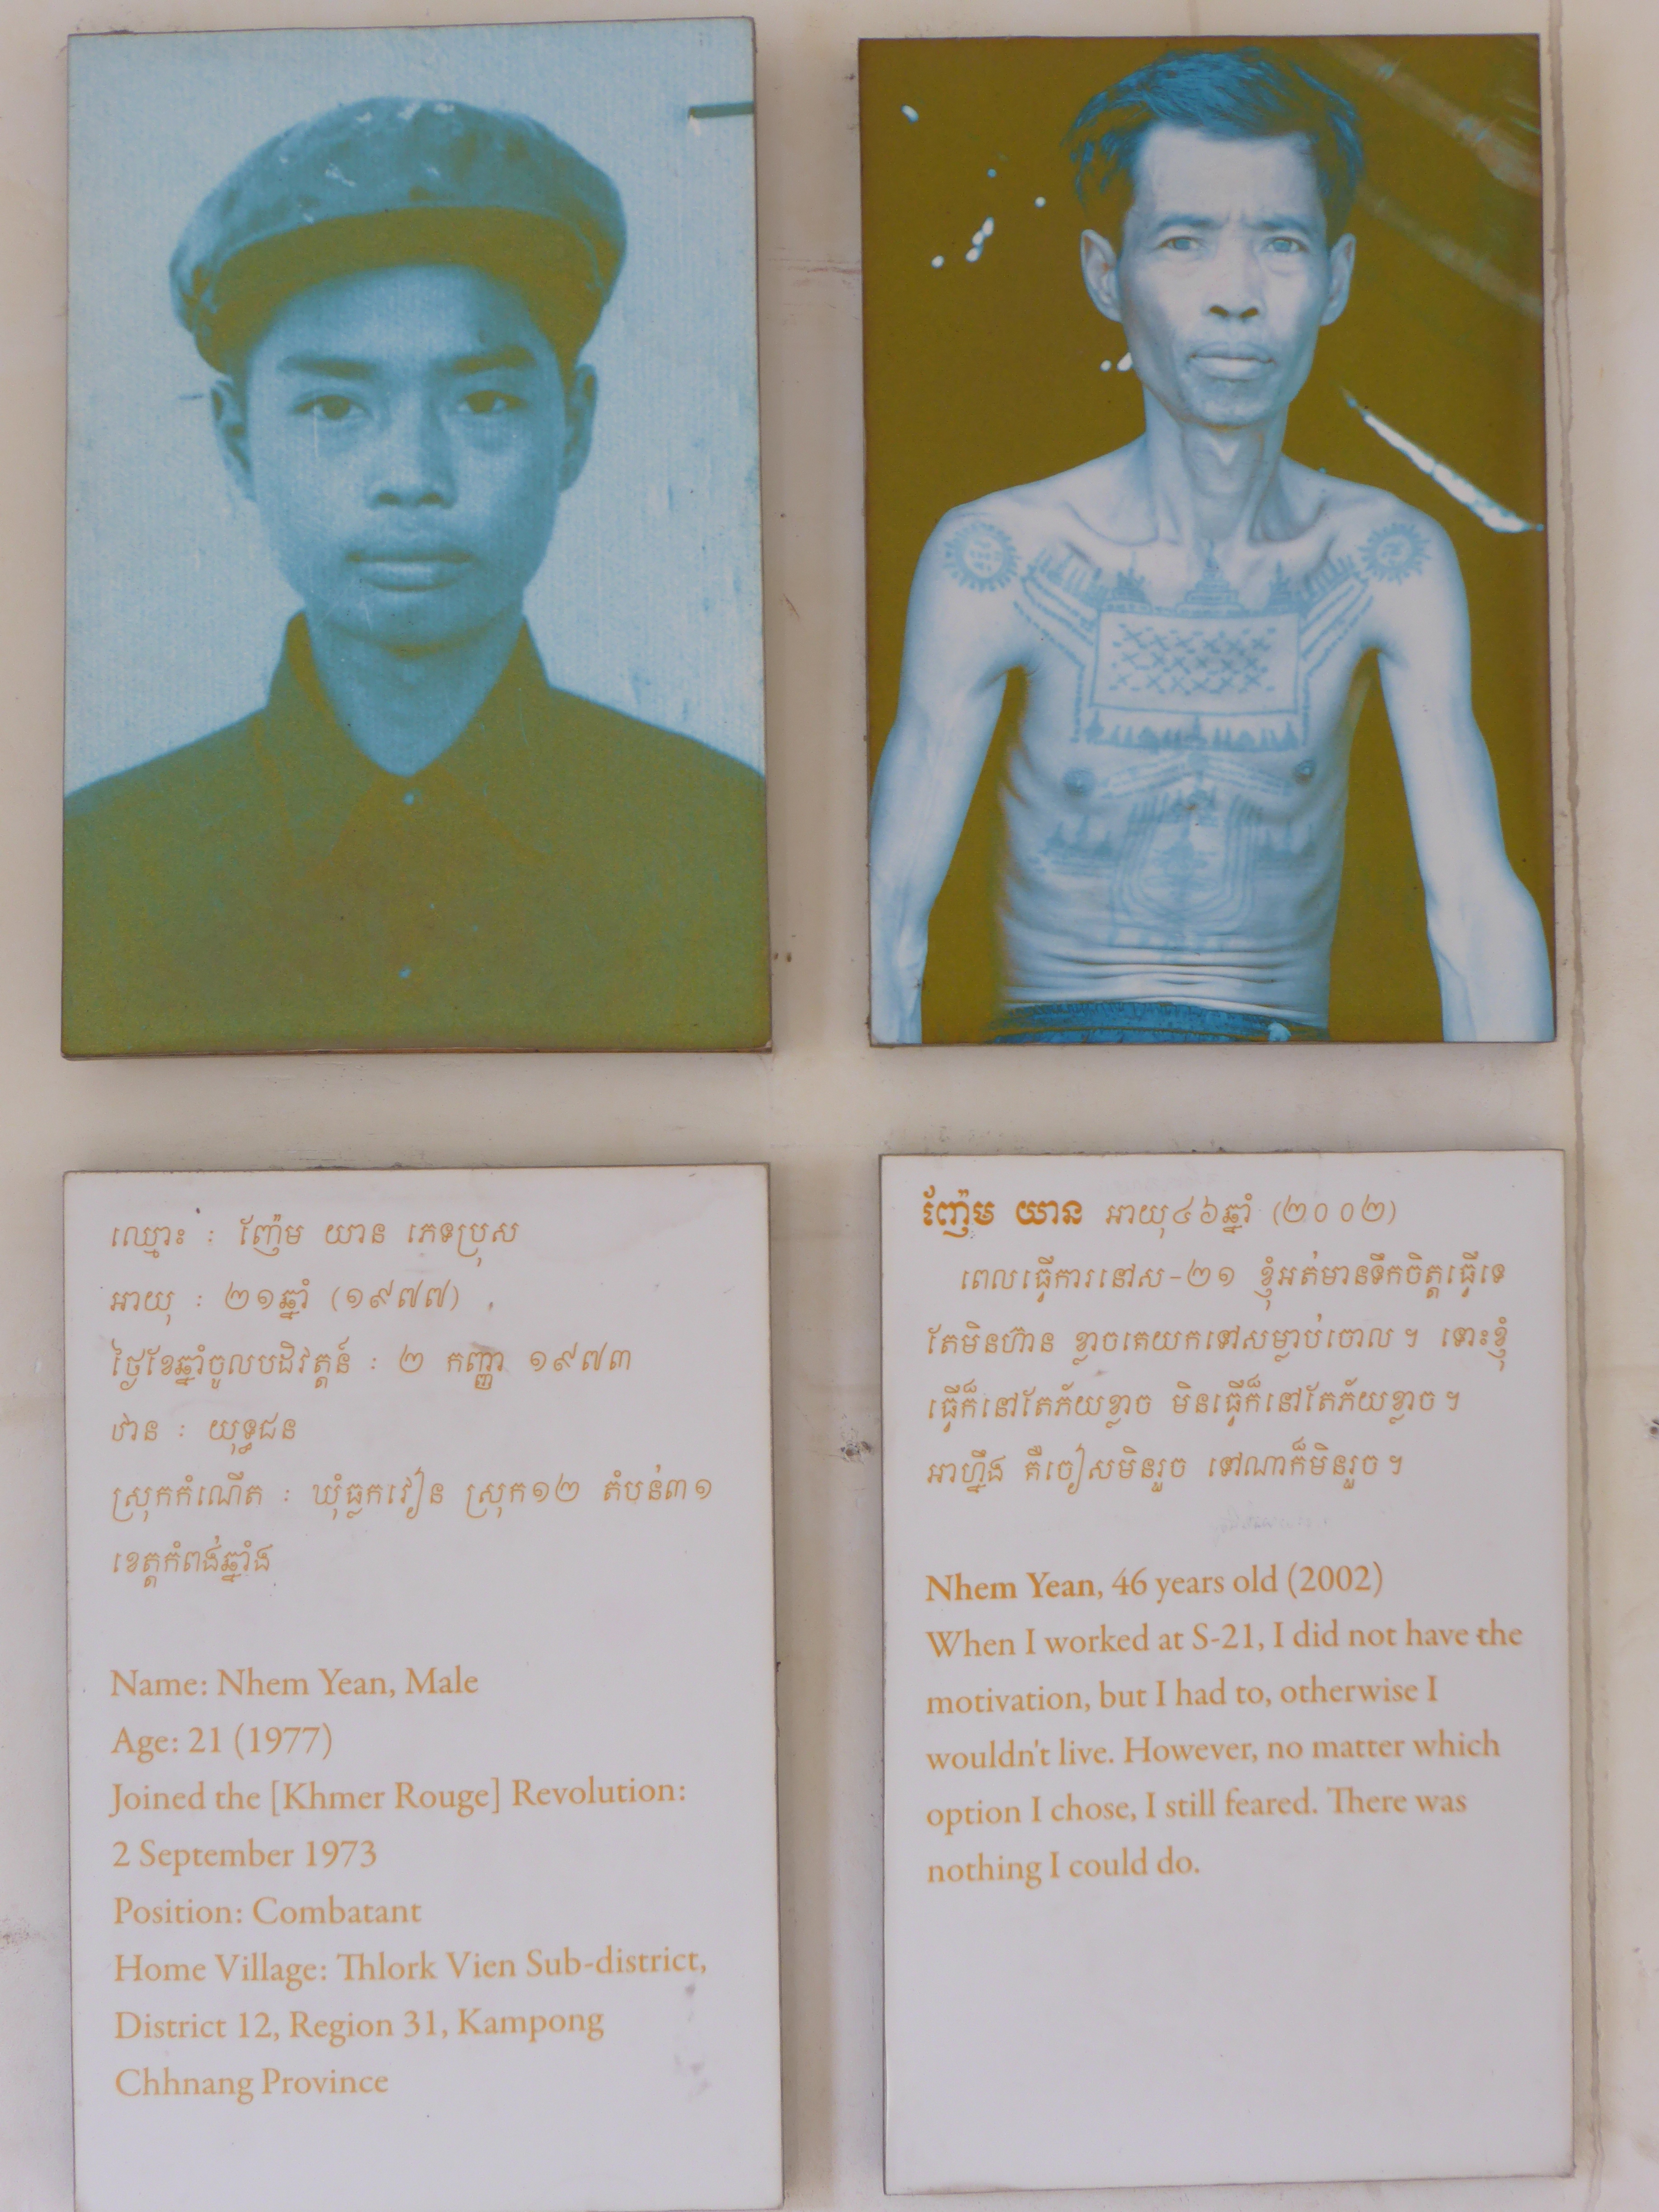 ឈ្មោះ : ញ៉ែម យាន ភេទប្រុស
អាយុ : ២១ឆ្នាំ (១៩៧៧)
ថ្ងៃខែឆ្នាំចូលបដិវត្តន៍ : ២ កញ្ញា ១៩៧៣
ឋាន : យុទ្ធជន
ស្រុកកំណើត : ឃុំធ្លកវៀន ស្រុក១២ តំបន់៣១
ខេត្តកំពង់ឆ្នាំង
Name: Nhem Yean, Male
Age: 21 (1977)
Joined the [Khmer Rouge] Revolution:
2 September 1973
Position: Combatant
Home Village: Thlork Vien Sub-district,
District 12, Region 31, Kampong
Chhnang Province
ញ៉ែម យាន អាយុ៤៦ឆ្នាំ (២០០២)
ពេលធ្វើការនៅស-២១ ខ្ញុំអត់មានទឹកចិត្តធ្វើទេ
តែមិនហ៊ាន ខ្លាចគេយកទៅសម្លាប់ចោល។ ទោះខ្ញុំ
ធ្វើក៏នៅតែភ័យខ្លាច មិនធ្វើក៏នៅតែភ័យខ្លាច។
អាហ្នឹង គឺចៀសមិនរួច ទៅណាក៏មិនរួច។
Nhem Yean, 46 years old (2002)
When I worked at S-21, I did not have the
motivation, but I had to, otherwise I
wouldn't live. However, no matter which
option I chose, I still feared. There was
nothing I could do.